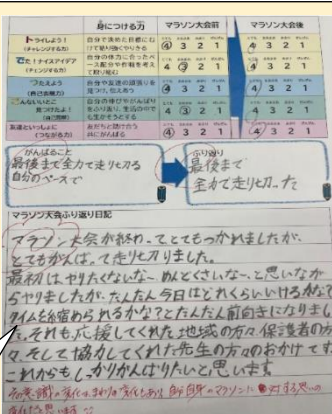 身につける力 マラソン大会前 マラソン大会後
トライしよう!
(チャレンジする力)
自分で決めた目標にむ
けて粘り強くやりきる
④ 3 2 1 4 3 2 1
でた!ナイスアイデア
(チェンジする力)
自分の体力に合ったペ
ース配分や作戦を考え
て取り組む
4 ③ 2 1 4 3 2 1
つたえよう
自分や友達の頑張りを
見つけ、伝えあう
4 3 2 1 4 3 2 1
見つけたよ!
4 3 2 1 4 3 2 1
友達といっしょに
(つながる力)
友だちと助け合う
共にがんばる
④ 3 2 1 ④ 3 2 1
がんばること
最後まで全力で走り切る
自分のペースで
ふり返り
最後まで
全力で走り切った
マラソン大会ふり返り日記
マラソン大会が終わってとてもつかれましたが、
とてもがんばって走り切りました。
最初はやりたくないな〜めんどくさいな〜と思いなが
らやりましたが、だんだん今日はどれくらいいけるかな?
タイムを縮められるかな?とだんだん前向きになりまし
た。それも、応援してくれた地域の方々、保護者の方
々、そして協力してくれた先生の方々のおかげです。
これからもしっかりがんばりたいと思います。